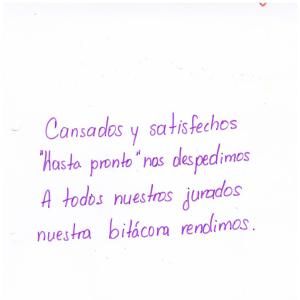 Cansados y satisfechos
"Hasta pronto" nos despedimos
A todos nuestros jurados
nuestra bitácora rendimos.